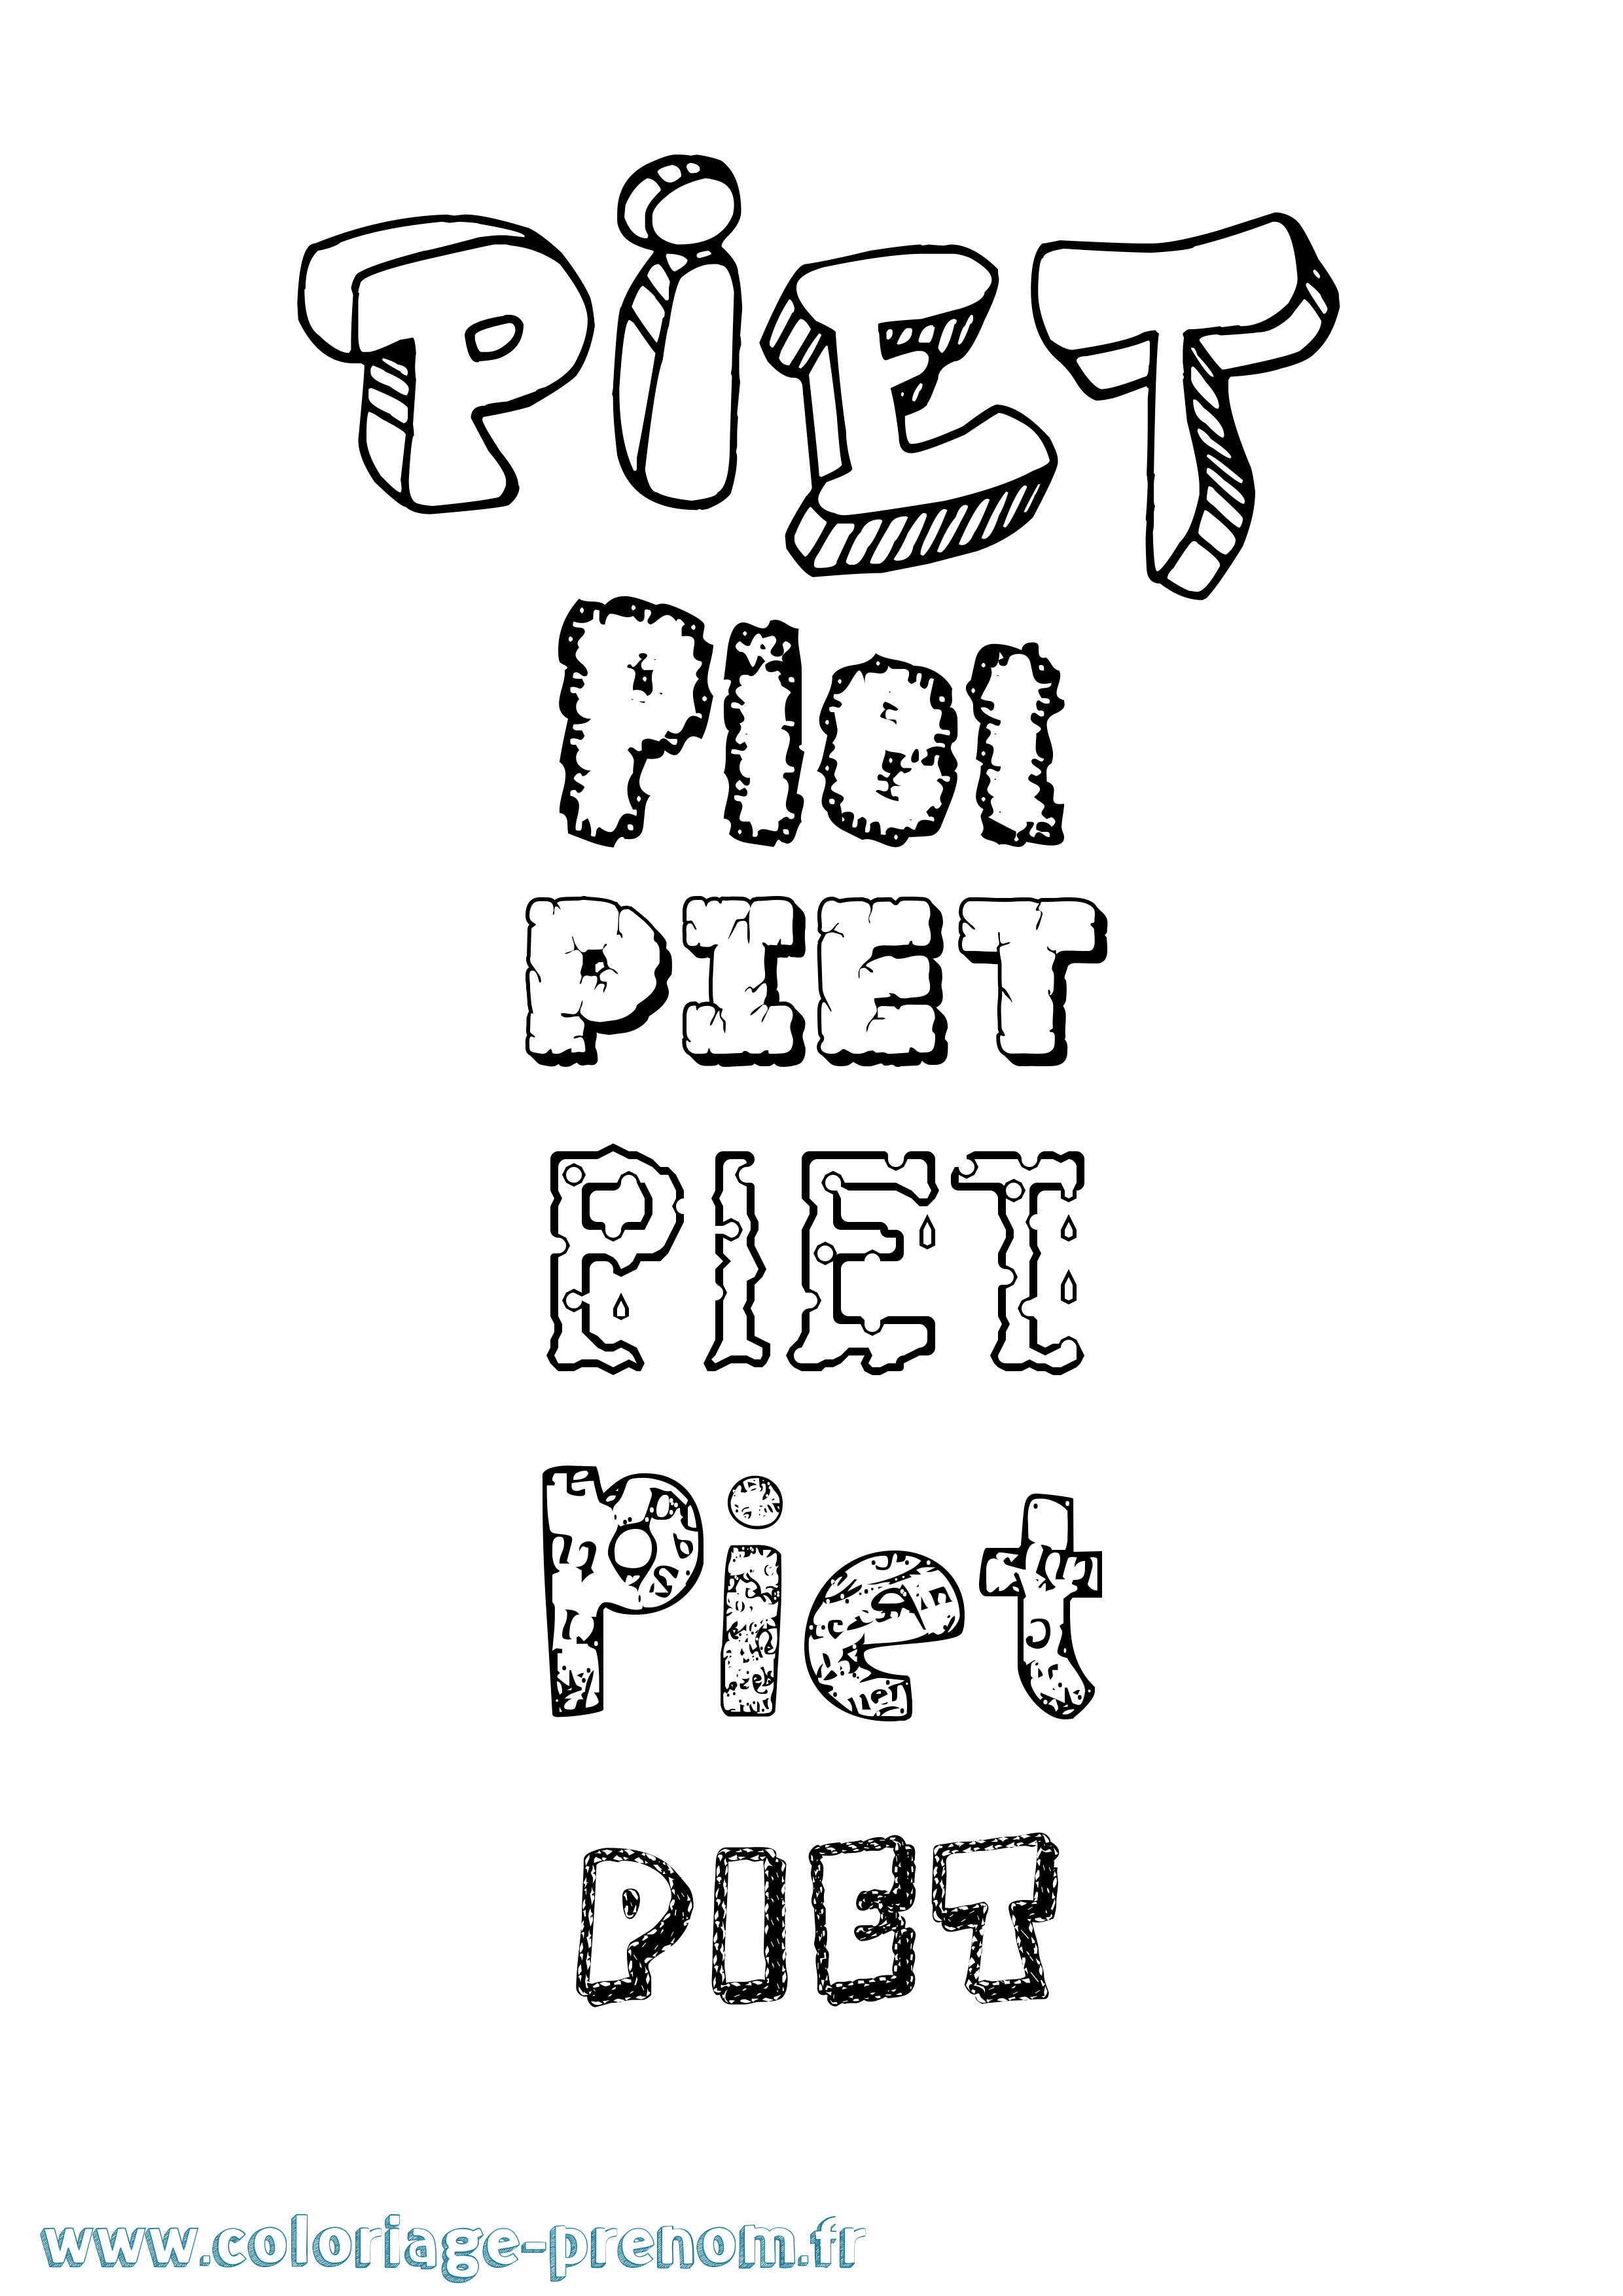 PiET
Piet
PIET
PIET
Piet
PIET
www.coloriage-prenom.fr